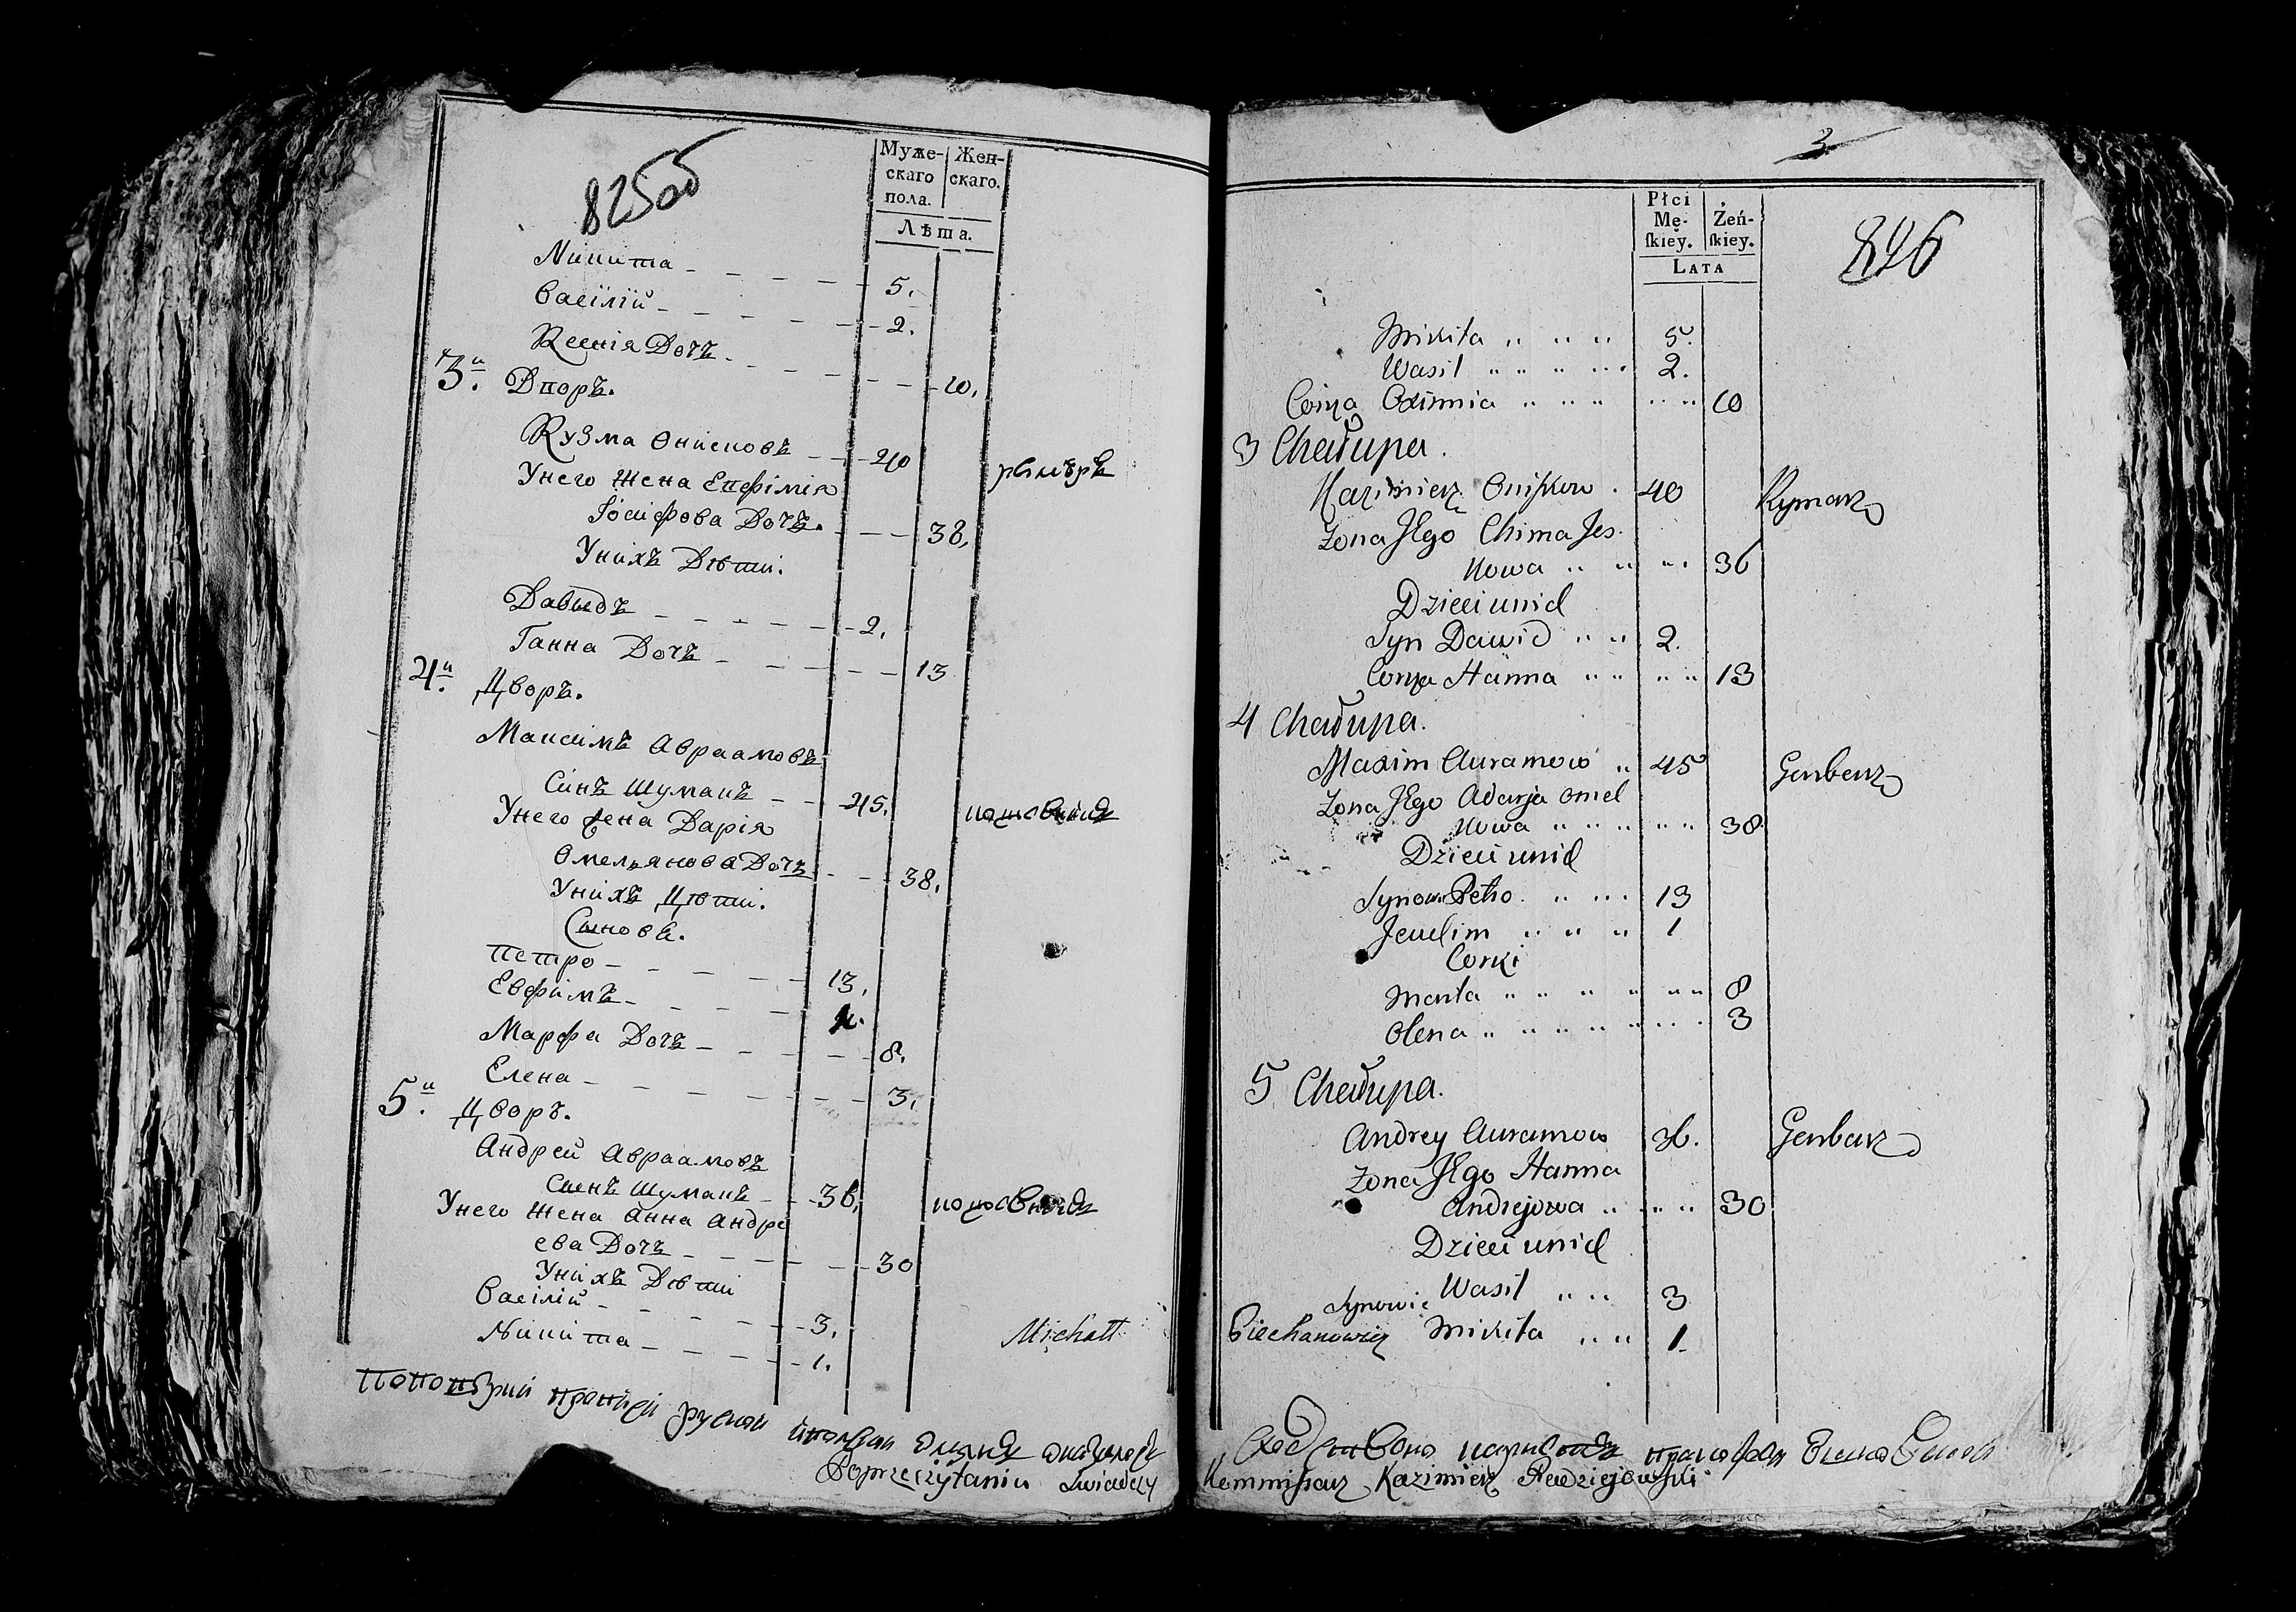 825об
Муже-
скаго
пола.
Жен-
скаго.
Лѣта.
Никита 5.
Васілій 2.
Ксенія Дочь 10.
3й. Дворъ.
Кузма Онисковъ 40 рымаръ
Унего Жена Евфімія
Іосифова Дочь. 38,
Унихъ Дѣти.
Давыдъ 2.
Ганна Дочь 13
4й. Дворъ.
Максимъ Авраамовъ
Синъ Шумакъ 45.
Унего жена Дарія
Омельянова Дочь 38.
Унихъ Дѣти.
Сыновѣ.
Петро 13.
Евфимъ 1.
Марфа Дочь 8.
Елена 3.
5й. Дворъ.
Андрей Авраамовъ
Сынъ Шумакъ 36,
Унего Жена Анна Андре
ева Дочь 30
Унихъ Дѣти
Васілій 3.
Никита 1.
Michałł
Poprzeczytaniu Swiadczy
3
826
Płci
Mę-
ſkiey.
Żeń-
ſkiey.
LATA
Mikita 5.
Wasil 2.
Corka Oxinnia 10
3 Chałupa.
Kazimierz Oniſkow 40 Rymarz
Zona Jego Chima Jes
kowa 36
Dzieci unich
Syn Dawid 2.
Corka Hanna 13
4 Chałupa.
Maxim Auramow 45 Garbarz
Zona Jego Odarja Omel
kowa 38.
Dzieci unich
Synow Petro 13
Jeuchim 1
Corki
Marta 8
Olena 3
5 Chałupa.
Andrey Auramow 36. Garbarz
Zona Jego Hanna
Andrejowa 30
Dzieci unich
Synowie Wasil 3
Ciechanowicz Mikita 1.
Kommiſsarz Kazimierz Radziejowſki